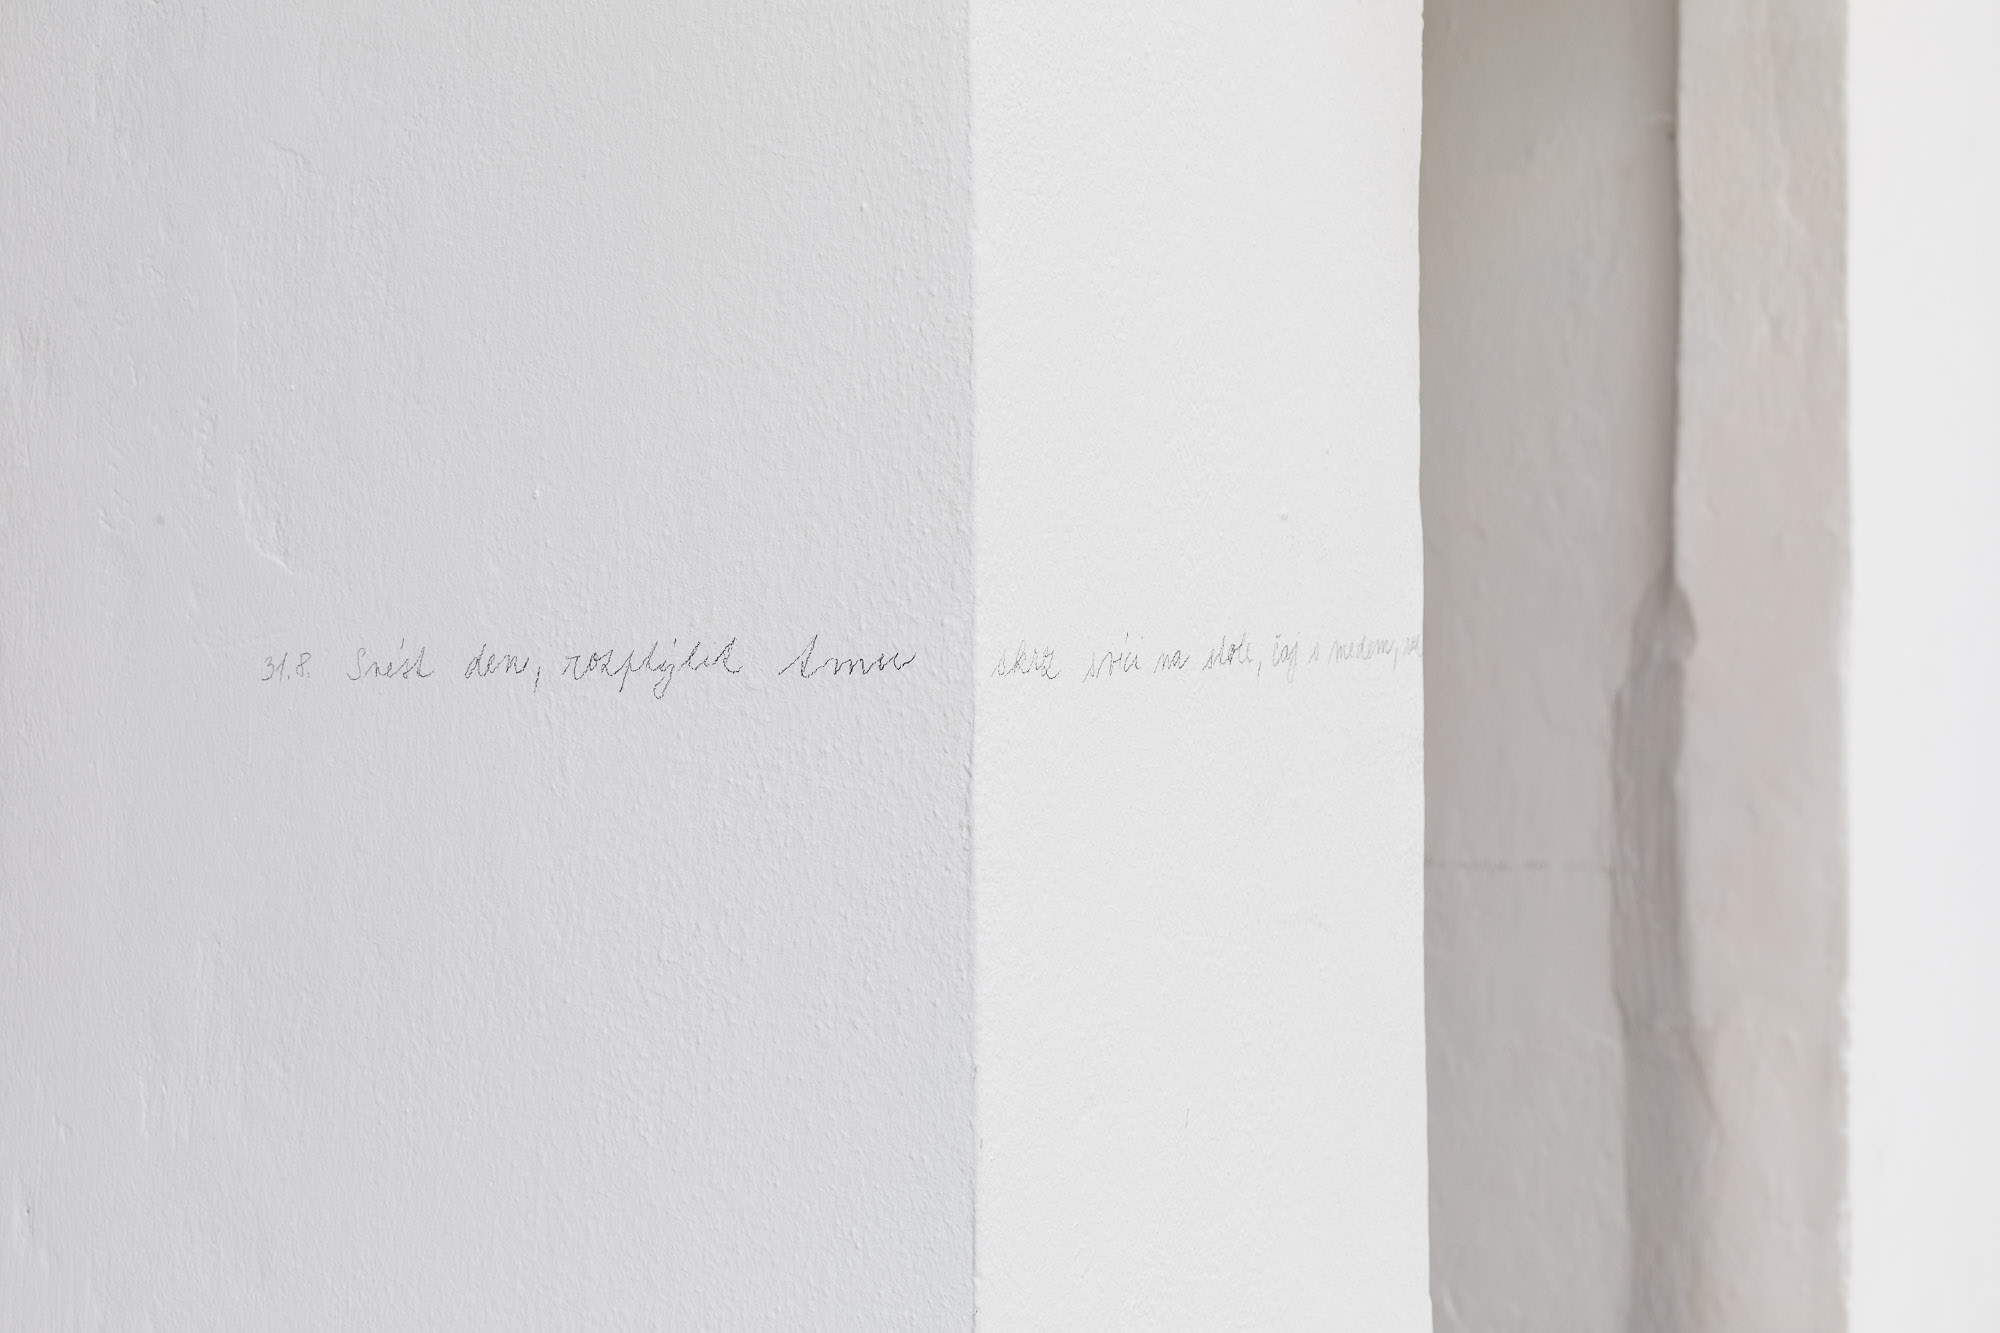 31.8. Snést den, rozptýlit tmu skrz svíci na stole, čaj s medem,